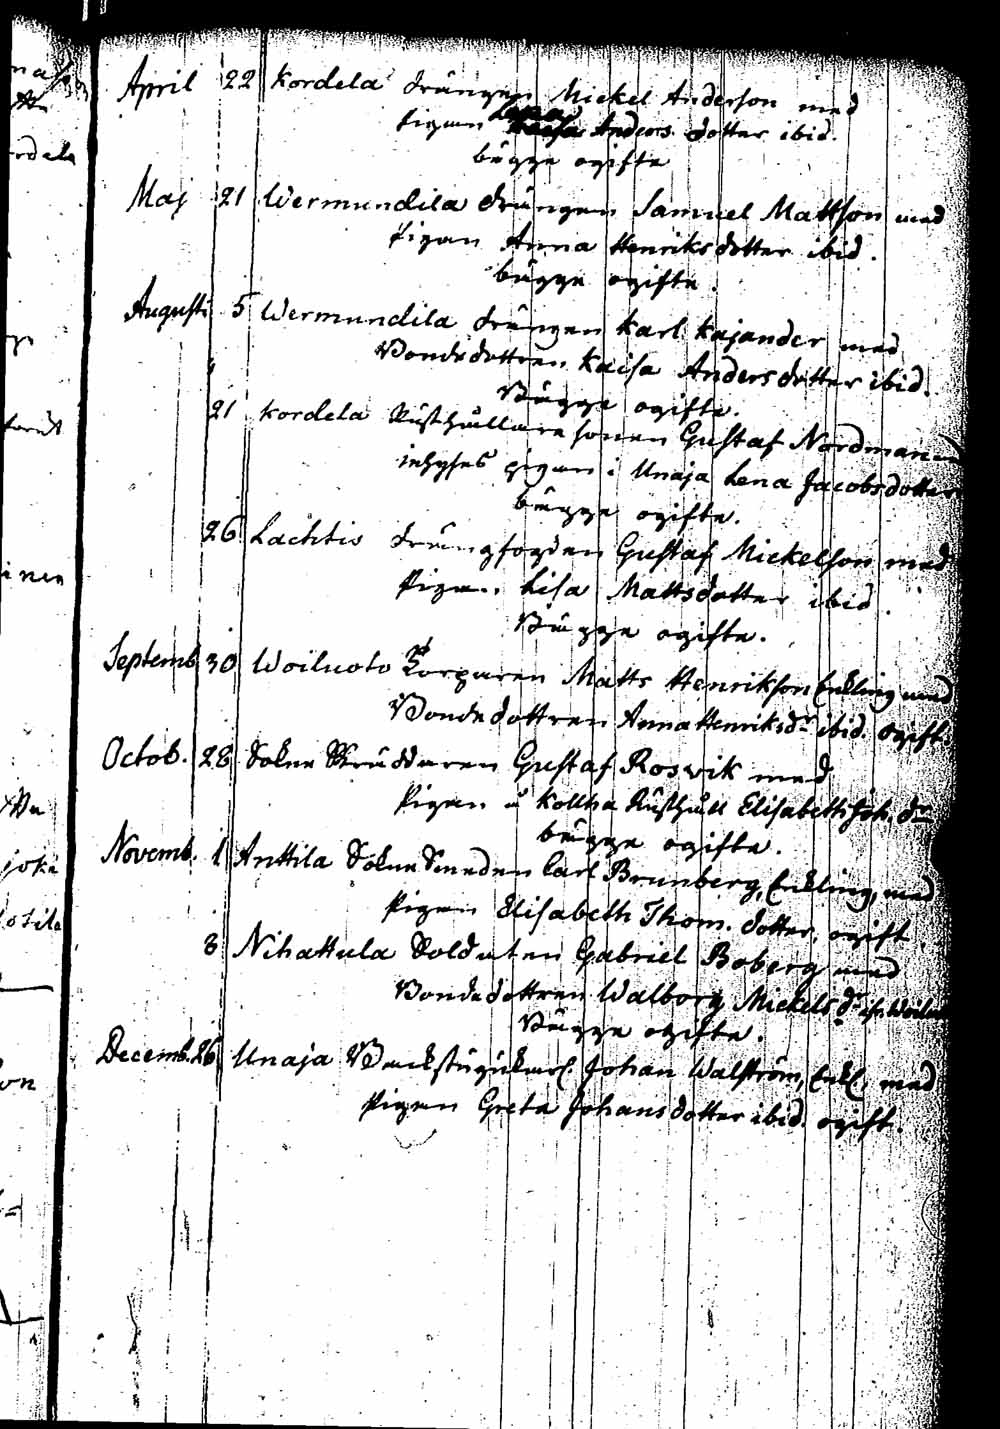 April 22 Kordela Drängen Mickel Anderson med
Pigan Lena Anders dotter ibid.
bägge ogifte
Maj 21 Wermundila Drängen Samuel Mattson med
Pigan Anna Henriksdotter ibid.
bägge ogifte.
Augusti 5 Wermundila Drängen Karl Kajander med
Bondedottren Kaisa Andersdotter ibid.
Bägge ogifte.
21 Kordela Rusthållare sonen Gustaf Nordman med
inhyses pigan i Unaja Lena Jacobsdotter
bägge ogifte.
26 Lachtis Drängfogden Gustaf Mickelson med
Pigan Lisa Mattsdotter ibid.
Bägge ogifte.
Septemb. 30 Woiluoto Torparen Matts Henrikson Enkling med
Bondedottren Anna Henriksdr ibid. ogift.
Octob. 28 Sokne Skräddaren Gustaf Roswik med
Pigan å Kollha Rusthåll Elisabeth Joh. dr
bägge ogifte.
Novemb. 1 Anttila Sokne Smeden Carl Brunberg, Enkling, med
Pigan Elisabeth Thom. dotter, ogift.
8 Nihattula Soldaten Gabriel Boberg med
Bondedottren Walborg Mickels dr ifr. Woiluo
Bägge ogifte.
Decemb. 26 Unaja Backstugukarl. Johan Walström, Enkl. med
Pigan Greta Johansdotter ibid. ogift.